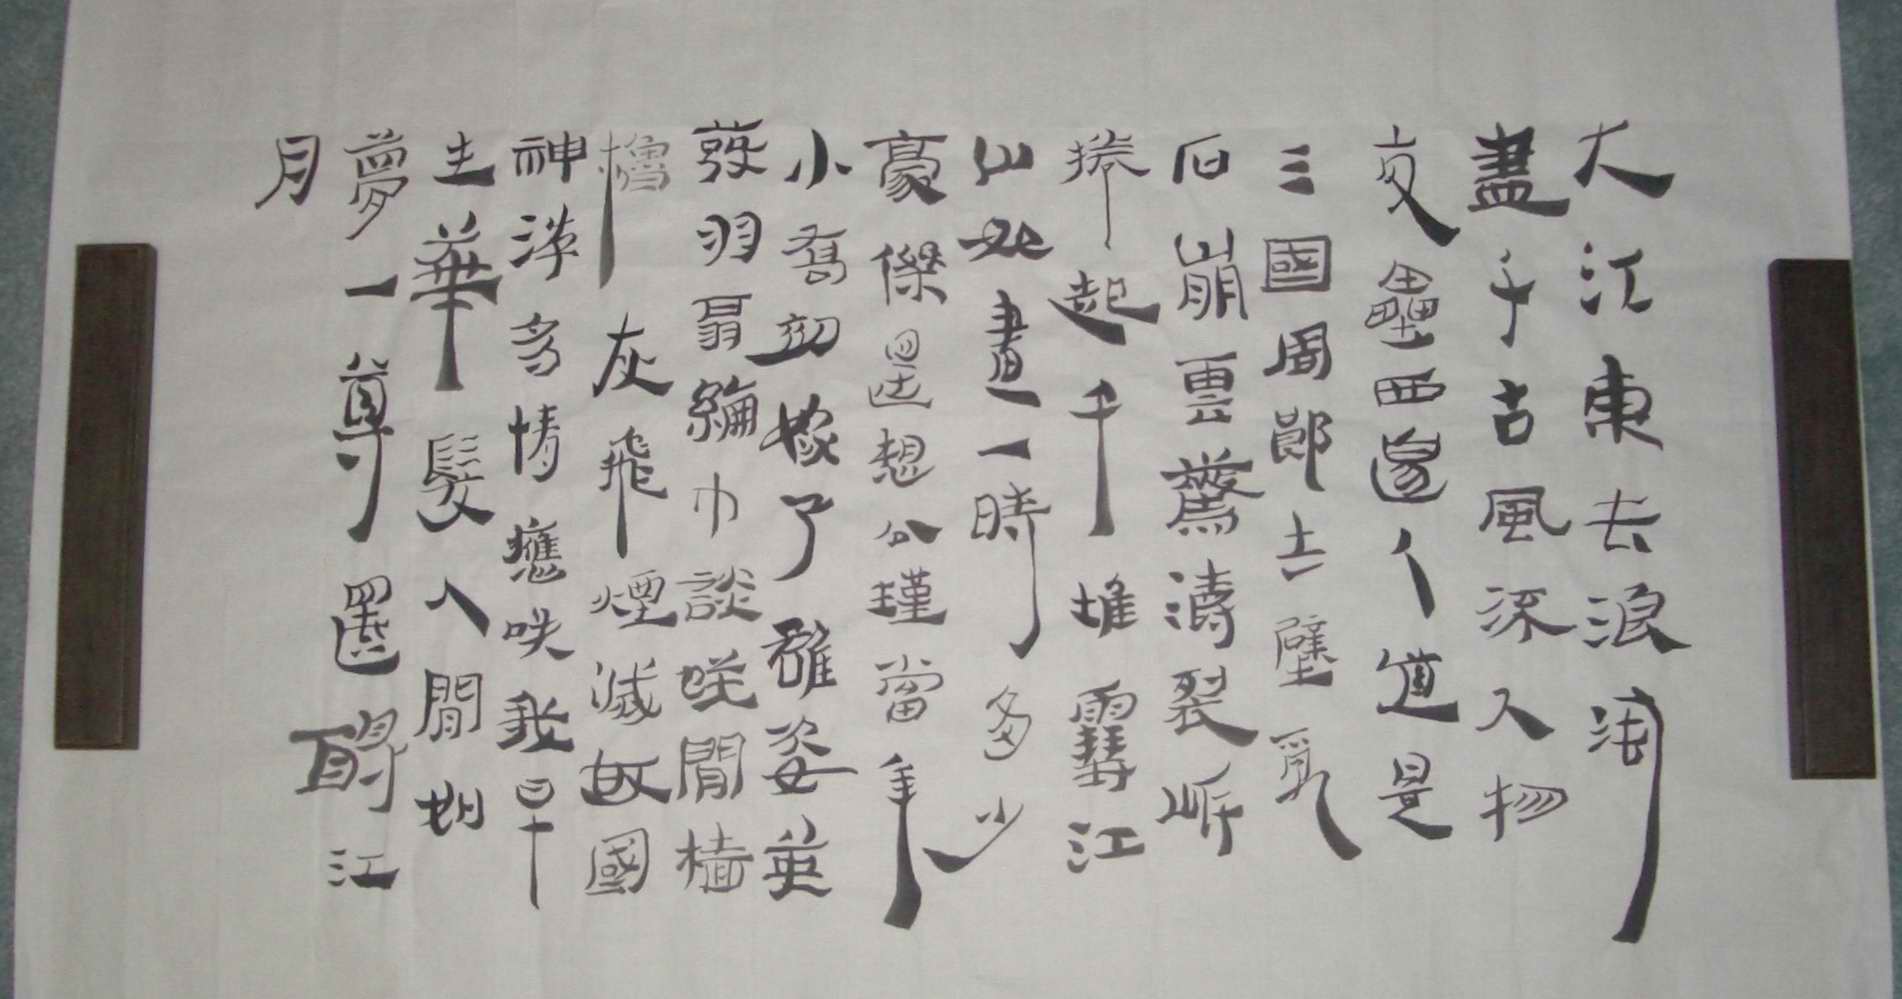 大江東去浪淘
盡千古風流人物
故壘西邊人道是
三國周郎赤壁亂
石崩雲驚濤裂岸
捲起千堆雪江
山如畫一時多少
豪傑遙想公瑾當年
小喬初嫁了雄姿英
發羽扇綸巾談笑間檣
櫓灰飛煙滅故國
神遊多情應笑我早
生華髮人間如
夢一尊還酹江
月